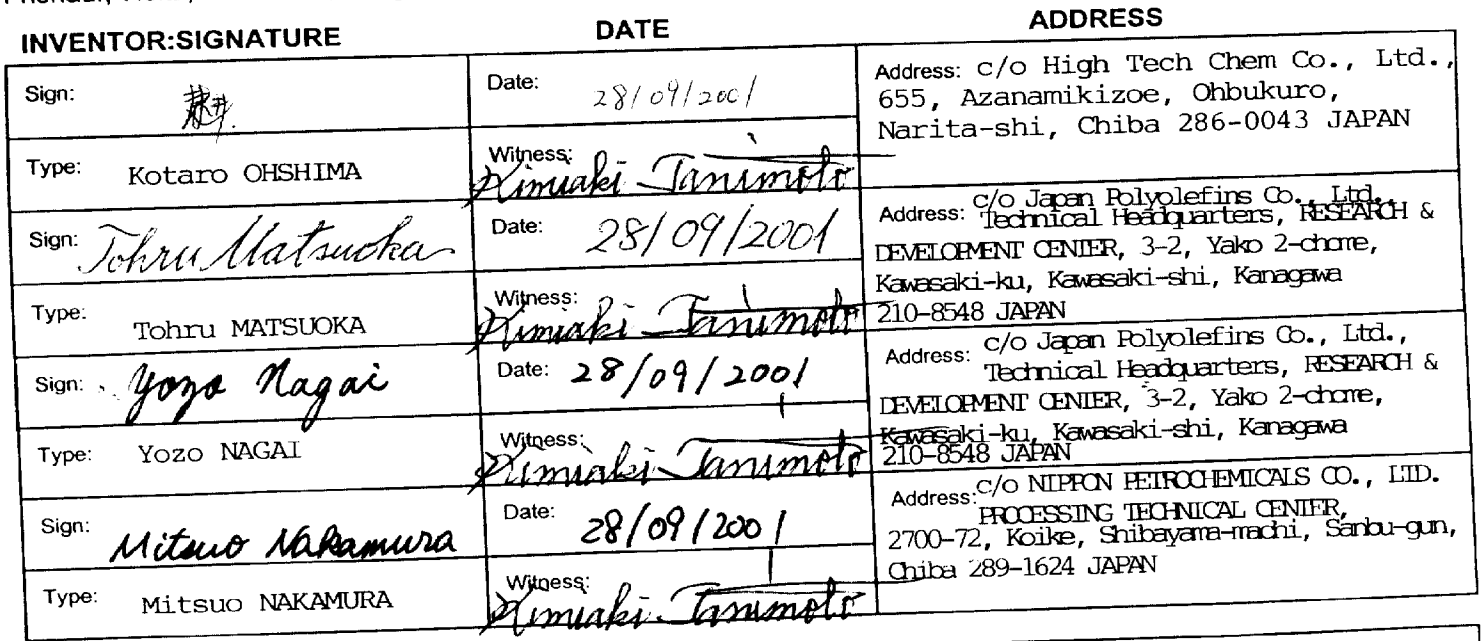 INVENTOR:SIGNATURE DATE ADDRESS
Sign:
Date: 28/09/2001
Address: c/o High Tech Chem Co., Ltd.,
655, Azanamikizoe, Ohbukuro,
Narita-shi, Chiba 286-0043 JAPAN
Type: Kotaro OHSHIMA
Witness: Kimiaki Tanimoto
Sign: Tohru Matsuoka
Date: 28/09/2001
Address: c/o Japan Polyolefins Co., Ltd.,
Technical Headquarters, RESEARCH &
DEVELOPMENT CENTER, 3-2, Yako 2-chome,
Kawasaki-ku, Kawasaki-shi, Kanagawa
210-8548 JAPAN
Type: Tohru MATSUOKA
Witness: Kimiaki Tanimoto
Sign: Yozo Nagai
Date: 28/09/2001
Address: c/o Japan Polyolefins Co., Ltd.,
Technical Headquarters, RESEARCH &
DEVELOPMENT CENTER, 3-2, Yako 2-chome,
Kawasaki-ku, Kawasaki-shi, Kanagawa
210-8548 JAPAN
Type: Yozo NAGAI
Witness: Kimiaki Tanimoto
Sign: Mitsuo Nakamura
Date: 28/09/2001
Address: c/o NIPPON PETROCHEMICALS CO., LTD.
PROCESSING TECHNICAL CENTER,
2700-72, Koike, Shibayama-machi, Sanbu-gun,
Chiba 289-1624 JAPAN
Type: Mitsuo NAKAMURA
Witness: Kimiaki Tanimoto